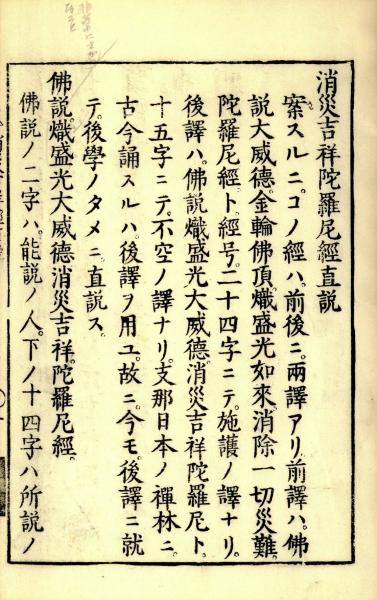 消災吉祥陀羅尼經直説
案スルニ。コノ經ハ。前後ニ。兩譯アリ。前譯ハ。佛
説大威德。金輪佛頂。熾盛光如來。消除一切災難。
陀羅尼經。ト。經号。二十四字ニテ。施護ノ譯ナリ。
後譯ハ。佛説熾盛光大威德。消災吉祥陀羅尼ト。
十五字ニテ。不空ノ譯ナリ。支那日本ノ禪林ニ。
古今誦スルハ。後譯ヲ用ユ。故ニ。今モ。後譯ニ就
テ。後學ノタメニ。直説ス。
佛説。熾盛光大威德消災吉祥。陀羅尼經。
佛説ノ二字ハ。能説ノ人。下ノ十四字ハ所説ノ